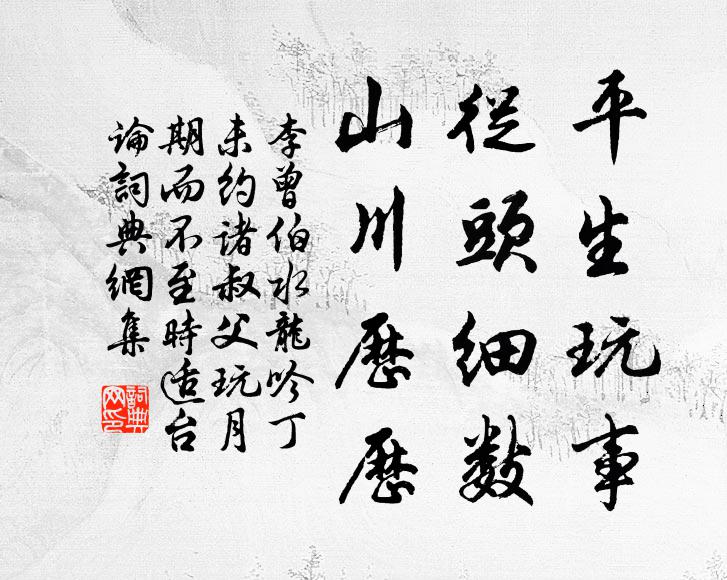 平生玩事
從頭細數
山川歷歷
李曾伯水龍吟丁
未約诸叔父玩月
期而不至時适台
論詞典網集
詞典
网印